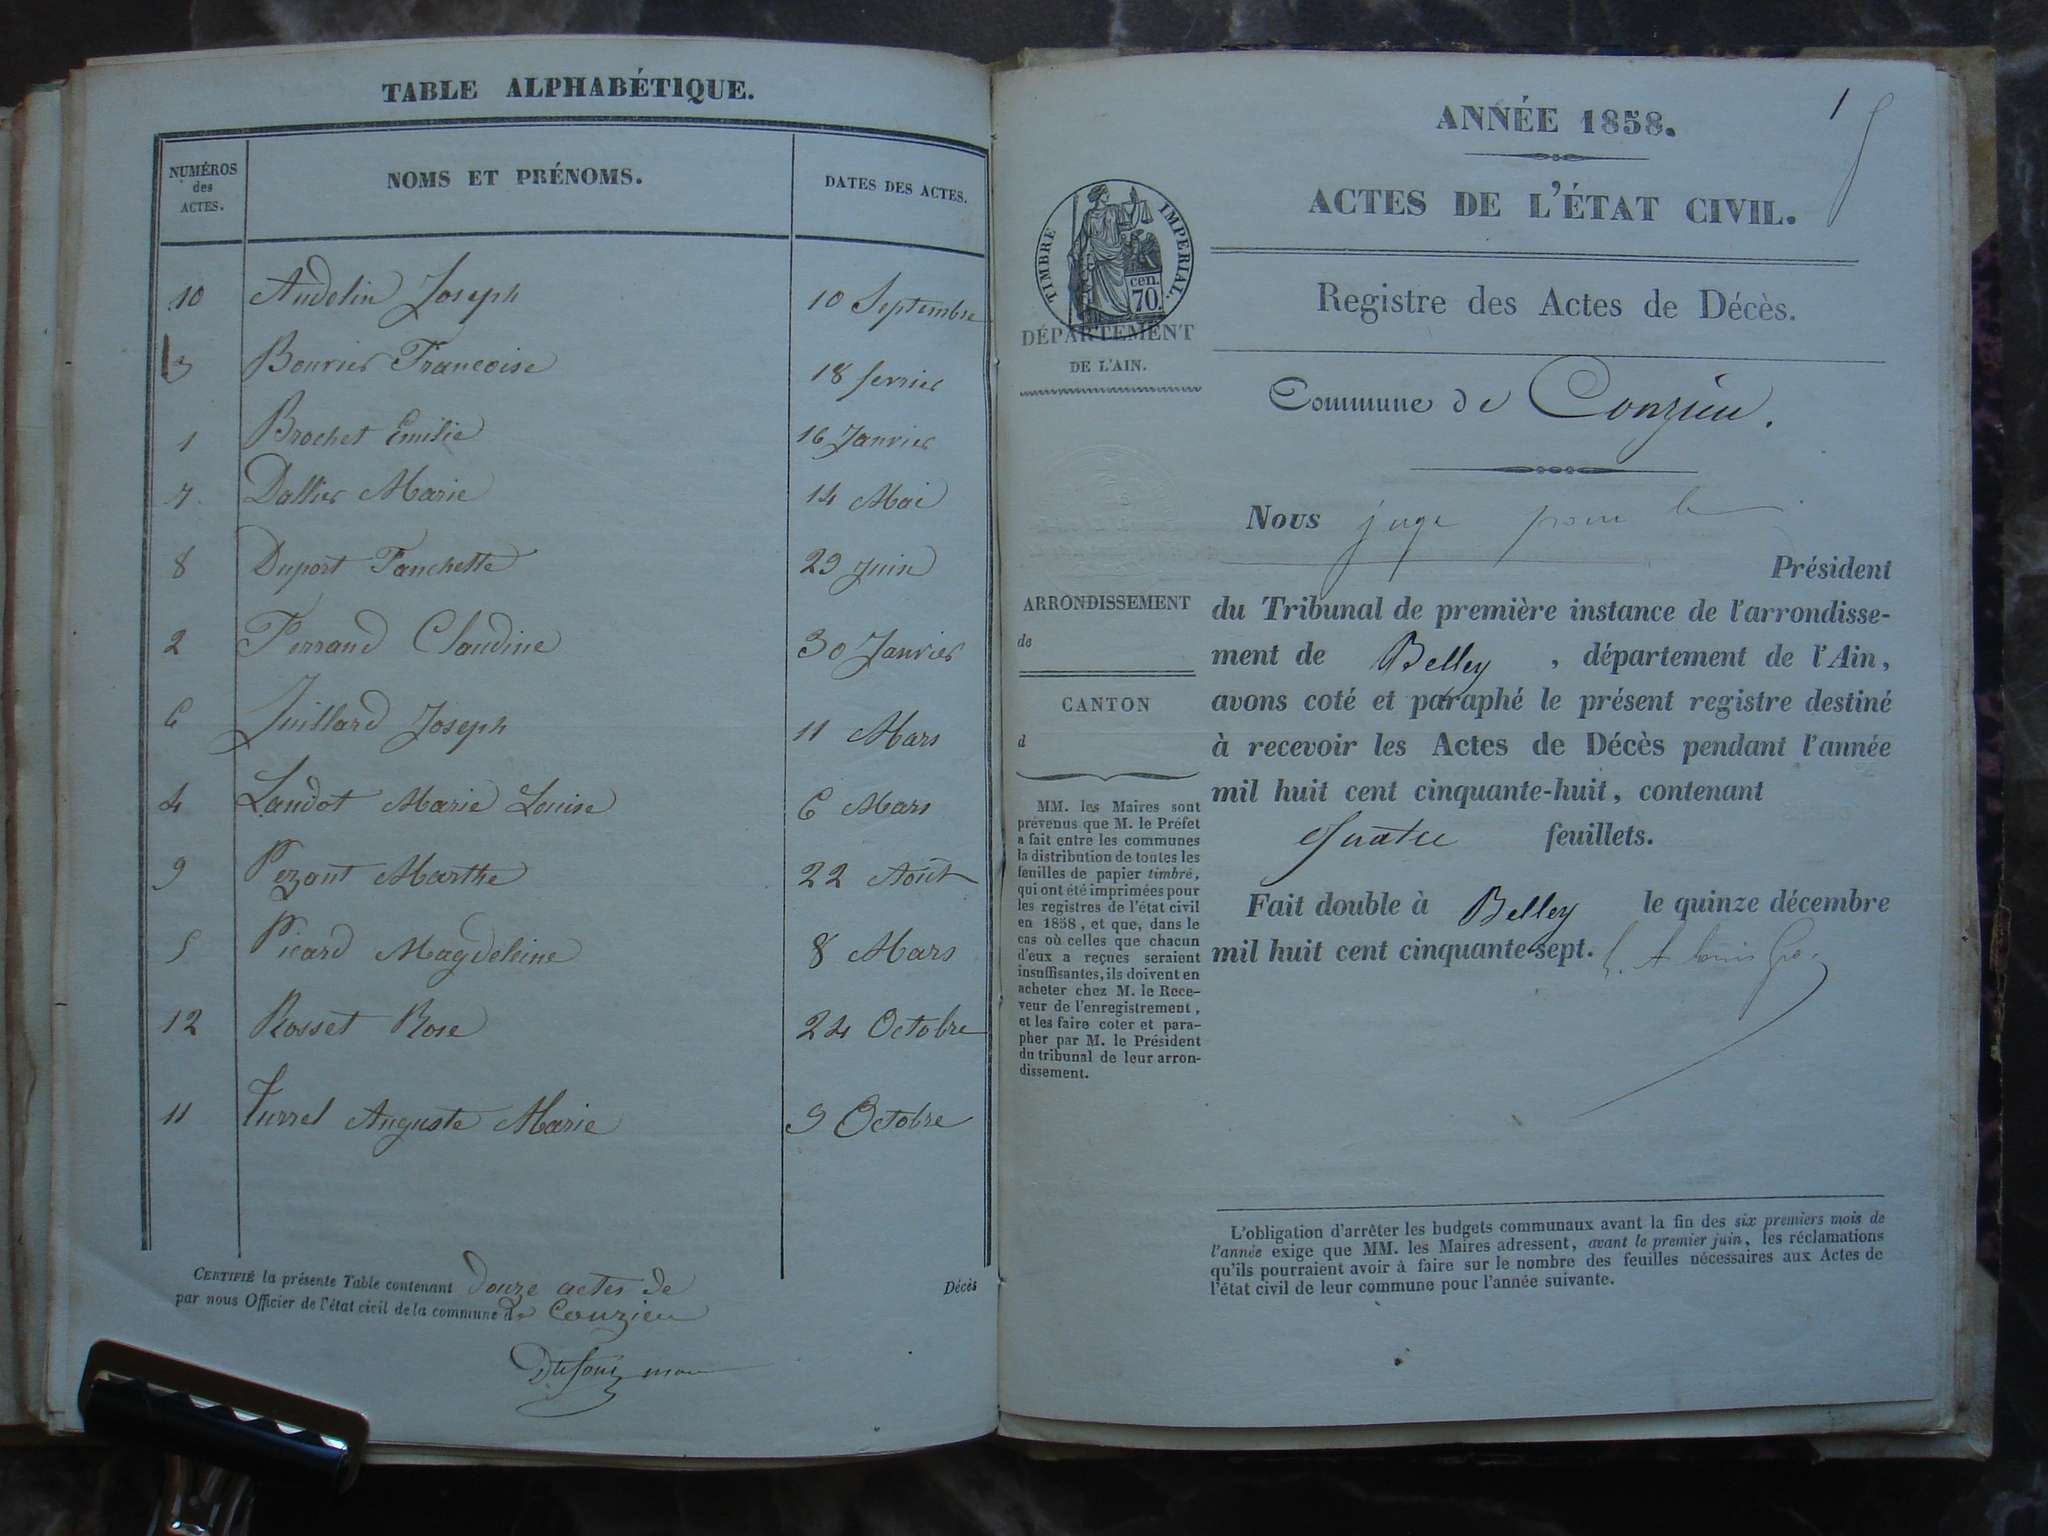 TABLE ALPHABÉTIQUE.
NUMÉROS des ACTES. NOMS ET PRÉNOMS. DATES DES ACTES.
10 Andelin Joseph 10 Septembre
3 Bouvier Françoise 18 fevrier
1 Brochet Emilie 16 Janvier
7 Dallier Marie 14 Mai
8 Duport Fanchette 29 Juin
2 Ferrand Claudine 30 Janvier
6 Juillard Joseph 11 Mars
4 Landot Marie Louise 6 Mars
9 Pezant Marthe 22 Août
5 Picard Magdeleine 8 Mars
12 Rosset Rose 24 Octobre
11 Turrel Auguste Marie 9 Octobre
CERTIFIÉ la présente Table contenant douze actes de Décès
par nous Officier de l'état civil de la commune de Conzieu
1
ANNÉE 1858.
ACTES DE L'ÉTAT CIVIL.
Registre des Actes de Décès.
Commune de Conzieu.
TIMBRE IMPERIAL.
cen.
70
DÉPARTEMENT
DE L'AIN.
ARRONDISSEMENT
de
CANTON
d
MM. les Maires sont
prévenus que M. le Préfet
a fait entre les communes
la distribution de toutes les
feuilles de papier timbré,
qui ont été imprimées pour
les registres de l'état civil
en 1858, et que, dans le
cas où celles que chacun
d'eux a reçues seraient
insuffisantes, ils doivent en
acheter chez M. le Rece-
veur de l'enregistrement,
et les faire coter et para-
pher par M. le Président
du tribunal de leur arron-
dissement.
Nous juge pour le
Président
du Tribunal de première instance de l'arrondisse-
ment de Belley, département de l'Ain,
avons coté et paraphé le présent registre destiné
à recevoir les Actes de Décès pendant l'année
mil huit cent cinquante-huit, contenant
quatre feuillets.
Fait double à Belley le quinze décembre
mil huit cent cinquante-sept.
L'obligation d'arrêter les budgets communaux avant la fin des six premiers mois de
l'année exige que MM. les Maires adressent, avant le premier juin, les réclamations
qu'ils pourraient avoir à faire sur le nombre des feuilles nécessaires aux Actes de
l'état civil de leur commune pour l'année suivante.